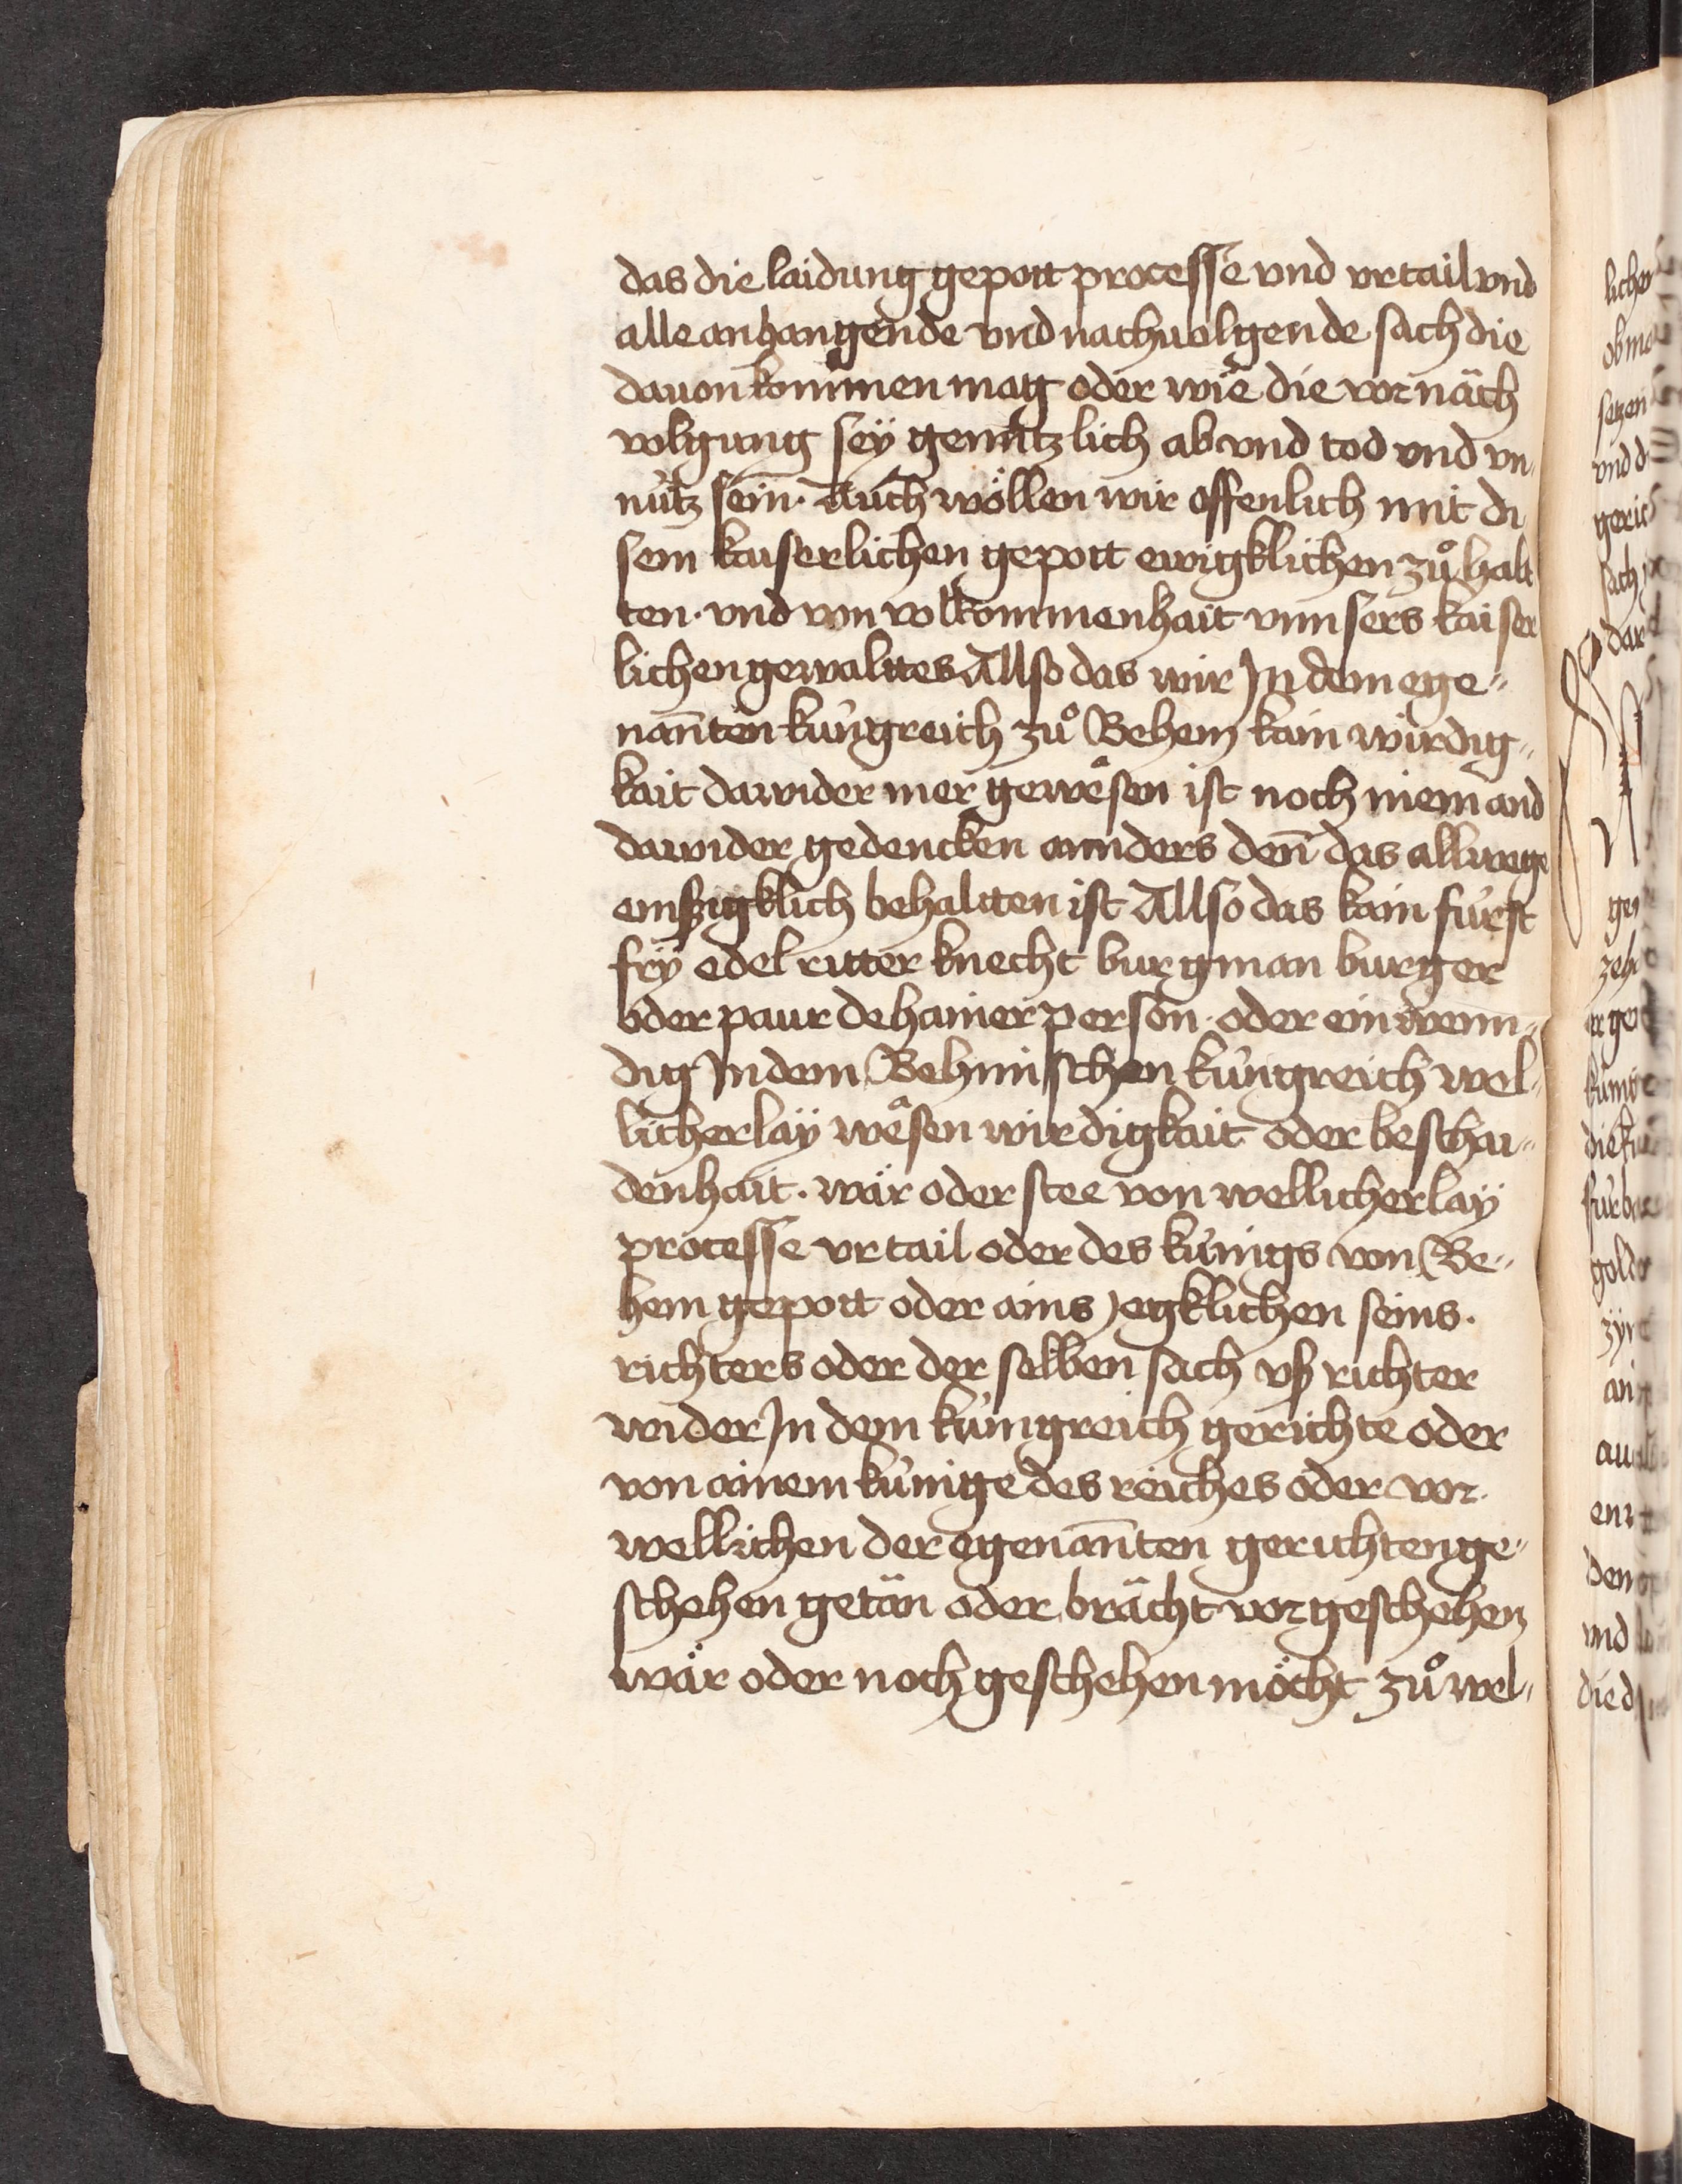 das die laidung gepott processe vnd vrtail vnd
alle anhangende vnd nachuolgende sach die
dauon kommen mag oder wie die vor näch
volgung sey genutzlich ab vnd tod vnd vn„
nütz sein· Auch wöllen wir offenlich mit di
sem kaiserlichen gepott ewigklichen zuͦ halt
ten· vnd von volkommenhait vnnsers kaiser
lichen gewalttes Allso das wir In dem ege„
nan̄ten küngreich zuͦ Behem kain wirdig„
kait dawider mer gewesen ist noch niemand
dawider gedencken annders den̄ das allwege
emszigklich behaltten ist Allso das kain fürst
frÿ edel ritter knecht burgman burger
oder paur dehainer person· oder einwenn„
dig In dem Behmischen küngreich wel„
licherlaÿ wesen wirdigkait oder beschai„
denhait· wär oder stee von wellicherlaÿ
processe vrtail oder des künigs von Be„
hem gepott oder ains yegklichen seins·
richters oder der selben sach vß richter
wider In dem küngreich gerichte oder
von ainem künige des reiches oder vor
wellichen der egenan̄ten gerichten ge„
schehen getän oder brächt vor geschehen
wär oder noch geschehen möcht zuͦ wel„